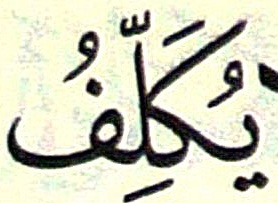 يُكَلِّفُ